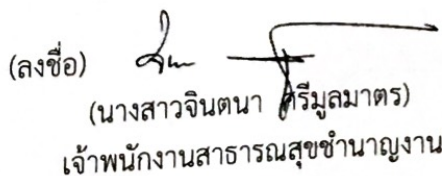 (ลงชื่อ)
(นางสาวจินตนา ศรีมูลมาตร)
เจ้าพนักงานสาธารณสุขชำนาญงาน